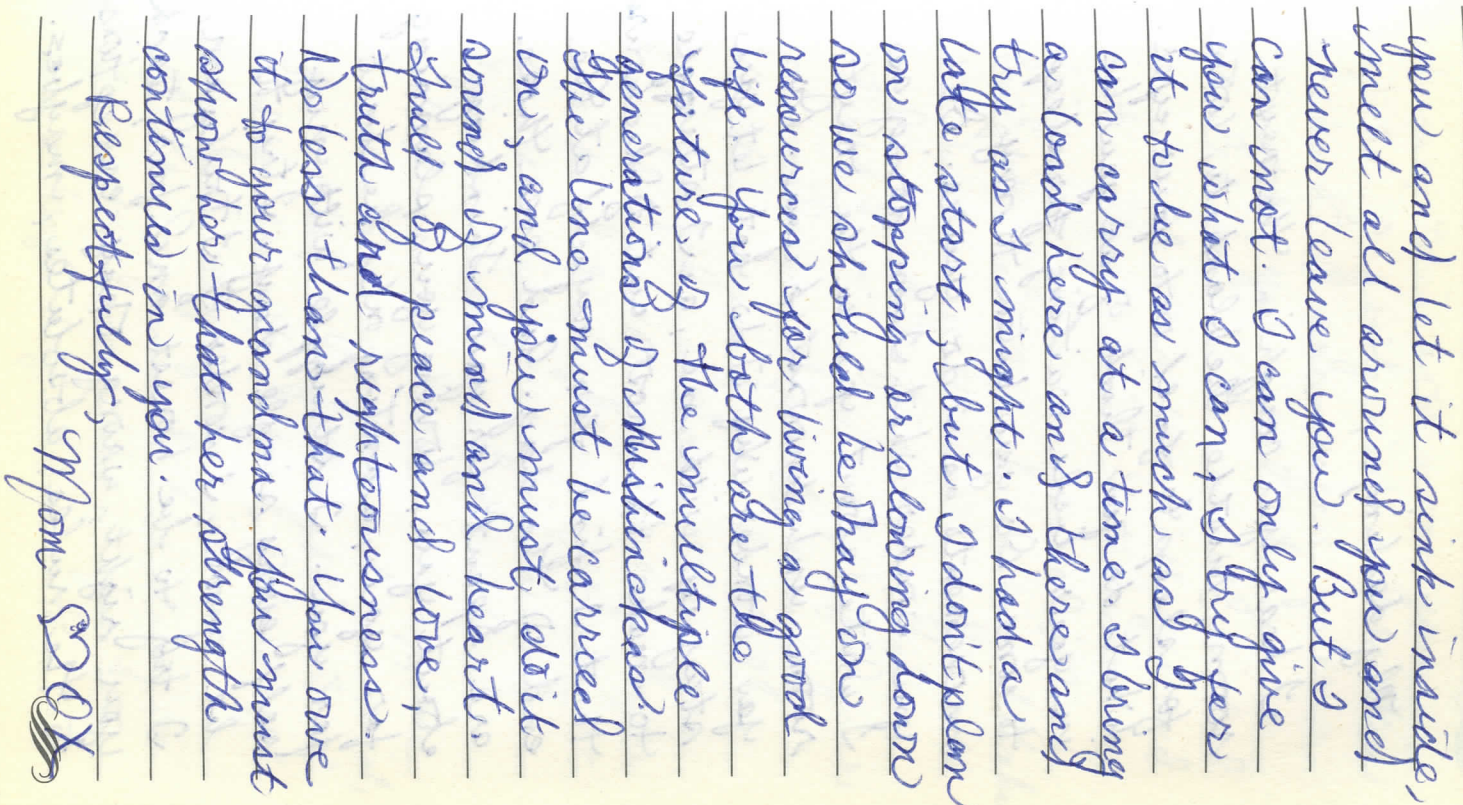 you and let it sink inside,
melt all around you and
never leave you. But I
can not. I can only give
you what I can, I try for
it to be as much as I
can carry at a time. I bring
a load here and there and
try as I might. I had a
late start, but I don't plan
on stopping or slowing down
so we should be okay on
resources for living a good
life. You both are the
future of the multiple
generations of mishinckas.
The line must be carried
on, and you must do it
sound of mind and heart.
Full of peace and love,
truth and righteousness.
No less than that. You owe
it to your grandma. You must
show her that her strength
continues in you.
Respectfully, Mom ♡ OX